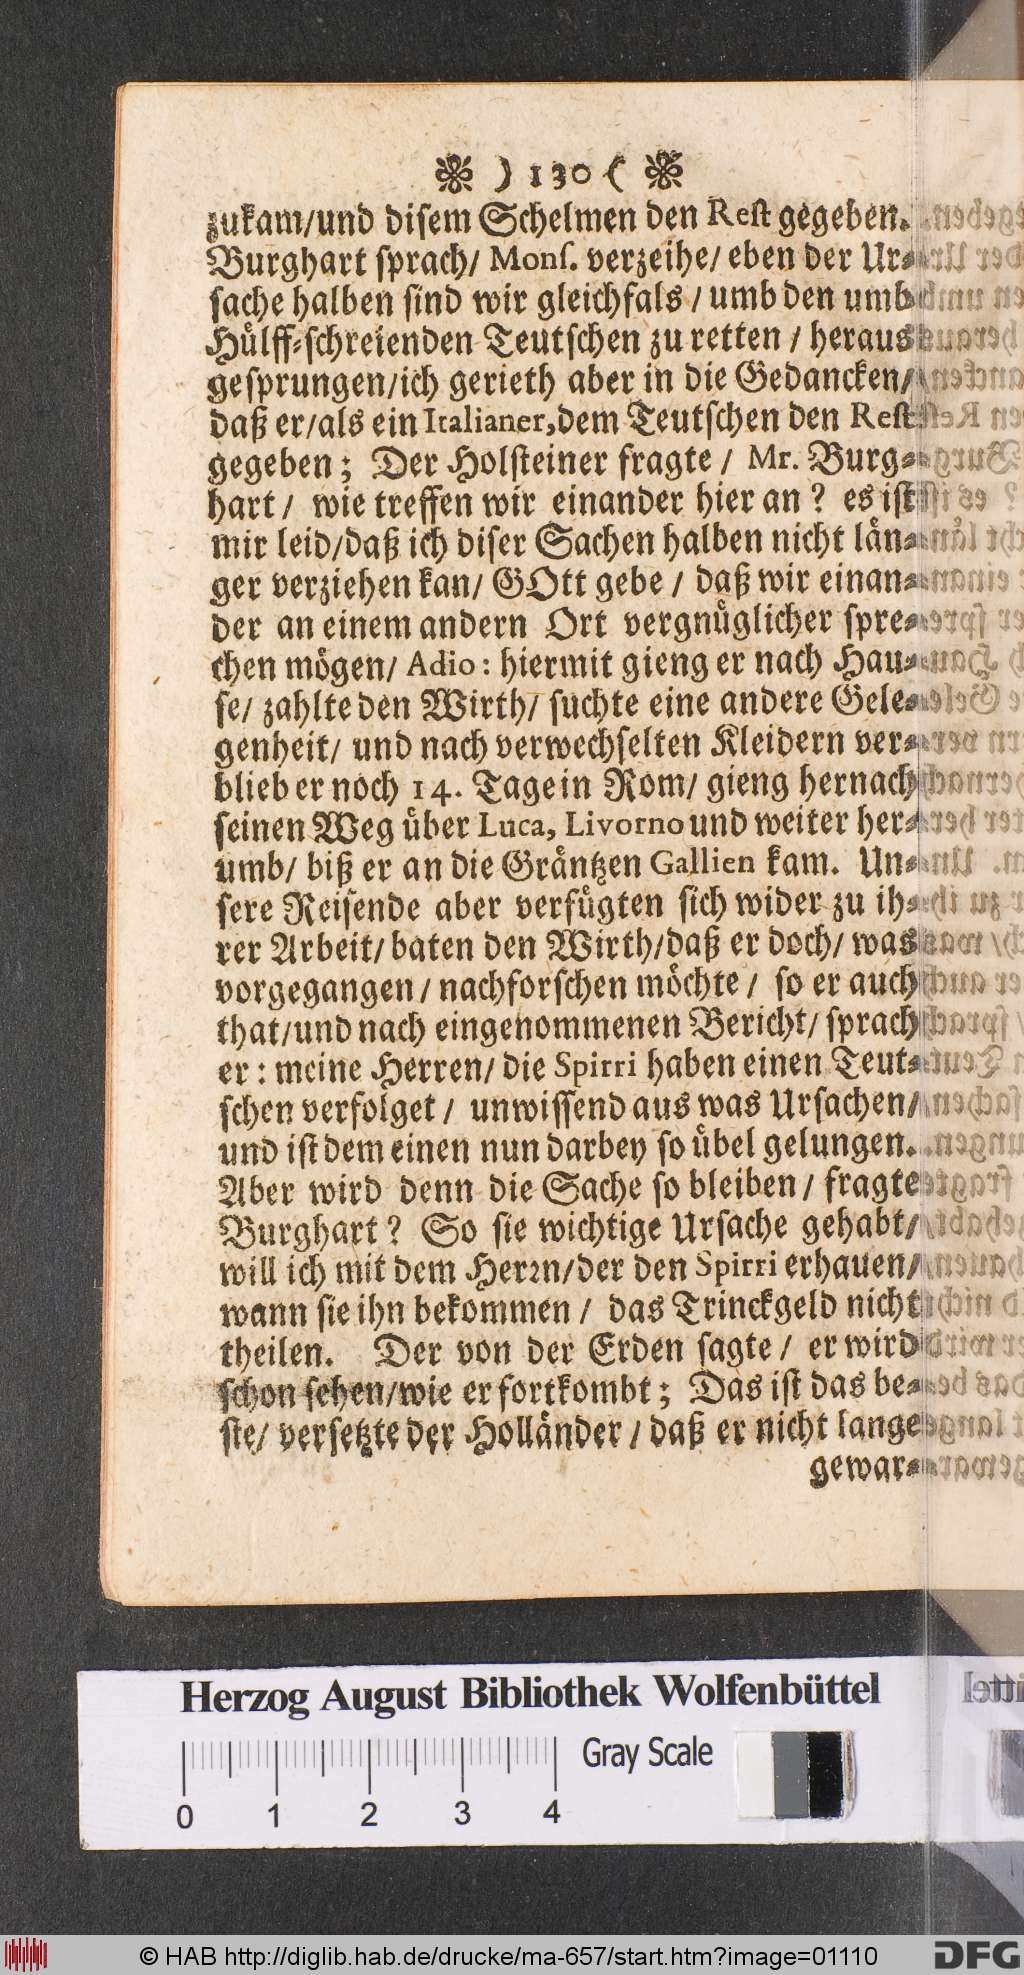 ❃ ) 130 ( ❃
zukam/und disem Schelmen den Rest gegeben.
Burghart sprach/ Mons. verzeihe/ eben der Ur⸗
sache halben sind wir gleichfals / umb den umb
Hülff⸗schreienden Teutschen zu retten / heraus
gesprungen/ich gerieth aber in die Gedancken/
daß er/als ein Italianer, dem Teutschen den Rest
gegeben; Der Holsteiner fragte / Mr. Burg⸗
hart / wie treffen wir einander hier an ? es ist
mir leid/daß ich diser Sachen halben nicht län⸗
ger verziehen kan/ GOtt gebe / daß wir einan⸗
der an einem andern Ort vergnüglicher spre⸗
chen mögen/ Adio: hiermit gieng er nach Hau⸗
se/ zahlte den Wirth/ suchte eine andere Gele⸗
genheit/ und nach verwechselten Kleidern ver⸗
blieb er noch 14. Tage in Rom/ gieng hernach
seinen Weg über Luca, Livorno und weiter her⸗
umb/ biß er an die Gräntzen Gallien kam. Un⸗
sere Reisende aber verfügten sich wider zu ih⸗
rer Arbeit/ baten den Wirth/daß er doch/ was
vorgegangen / nachforschen möchte / so er auch
that/und nach eingenommenen Bericht/ sprach
er : meine Herren/ die Spirri haben einen Teut⸗
schen verfolget / unwissend aus was Ursachen/
und ist dem einen nun darbey so übel gelungen.
Aber wird denn die Sache so bleiben / fragte
Burghart ? So sie wichtige Ursache gehabt/
will ich mit dem Herrn/der den Spirri erhauen/
wann sie ihn bekommen / das Trinckgeld nicht
theilen. Der von der Erden sagte / er wird
schon sehen/wie er fortkombt; Das ist das be⸗
ste/ versetzte der Holländer / daß er nicht lange
gewar⸗
Herzog August Bibliothek Wolfenbüttel
Gray Scale
0 1 2 3 4
© HAB http://diglib.hab.de/drucke/ma-657/start.htm?image=01110
DFG